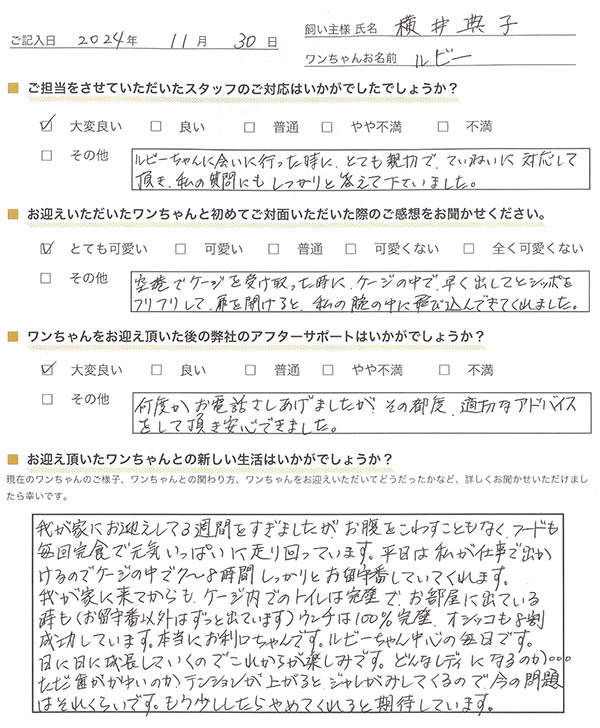 ご記入日 2024年 11月 30日
飼い主様 氏名 横井典子
ワンちゃんお名前 ルビー
■ ご担当をさせていただいたスタッフのご対応はいかがでしたでしょうか？
☑ 大変良い □ 良い □ 普通 □ やや不満 □ 不満
□ その他
ルビーちゃんに会いに行った時に、とても親切で、ていねいに対応して
頂き、私の質問にもしっかりと答えて下ていました。
■ お迎えいただいたワンちゃんと初めてご対面いただいた際のご感想をお聞かせください。
☑ とても可愛い □ 可愛い □ 普通 □ 可愛くない □ 全く可愛くない
□ その他
空港でケージを受け取った時に、ケージの中で、早く出してとシッポを
フリフリして、扉を開けると、私の腕の中に飛び込んできてくれました。
■ ワンちゃんをお迎え頂いた後の弊社のアフターサポートはいかがでしょうか？
☑ 大変良い □ 良い □ 普通 □ やや不満 □ 不満
□ その他
何度かお電話さしあげましたが、その都度、適切なアドバイス
をして頂き安心できました。
■ お迎え頂いたワンちゃんとの新しい生活はいかがでしょうか？
現在のワンちゃんのご様子、ワンちゃんとの関わり方、ワンちゃんをお迎えいただいてどうだったかなど、詳しくお聞かせいただけまし
たら幸いです。
我が家にお迎えして3週間をすぎましたが、お腹をこわすこともなく、フードも
毎回完食で元気いっぱいに走り回っています。平日は私が仕事で出か
けるのでケージの中で7〜8時間しっかりとお留守番していてくれます。
我が家に来てからも、ケージ内でのトイレは完璧で、お部屋に出ている
時も(お留守番以外はずっと出ています)ウンチは100%完璧、オシッコも8割
成功しています。本当にお利口ちゃんです。ルビーちゃん中心の毎日です。
日に日に成長していくのでこれからが楽しみです。どんなレディになるのか…
ただ歯がかゆいのかテンションが上がると、ジャレがみしてくるので今の問題
はそれくらいです。もう少ししたらやめてくれると期待しています。